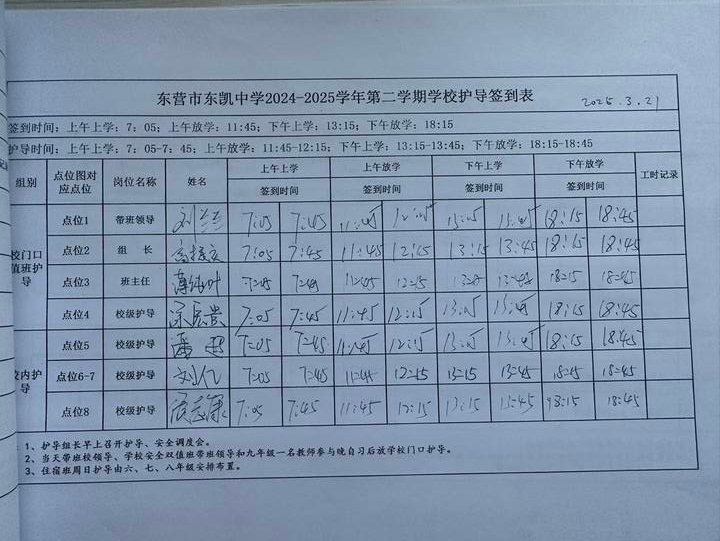 东营市东凯中学2024-2025学年第二学期学校护导签到表 2025.3.21
签到时间：上午上学：7：05；上午放学：11:45；下午上学：13:15；下午放学：18:15
护导时间：上午上学：7：05-7；45；上午放学：11:45-12:15；下午上学：13:15-13:45；下午放学：18:15-18:45
组别 点位图对应点位 岗位名称 姓名 上午上学 上午放学 下午上学 下午放学 工时记录
签到时间 签到时间 签到时间 签到时间
校门口值班护导
点位1 带班领导 刘 7:05 7:45 11:45 12:15 13:15 13:45 18:15 18:45
点位2 组 长 7:05 7:45 11:45 12:15 13:15 13:45 18:15 18:45
点位3 班主任 7:05 7:45 11:45 12:15 18:15 18:45
点位4 校级护导 7:05 7:45 11:45 12:15 13:15 13:45 18:15 18:45
校内护导
点位5 校级护导 7:05 7:45 11:45 12:15 13:15 13:45 18:15 18:45
点位6-7 校级护导 刘亿 7:05 7:45 11:45 12:15 13:15 13:45 18:15 18:45
点位8 校级护导 7:05 7:45 11:45 12:15 13:15 13:45 18:15 18:45
1、护导组长早上召开护导、安全调度会。
2、当天带班校领导、学校安全双值班带班领导和九年级一名教师参与晚自习后放学校门口护导。
3、住宿班周日护导由六、七、八年级安排布置。